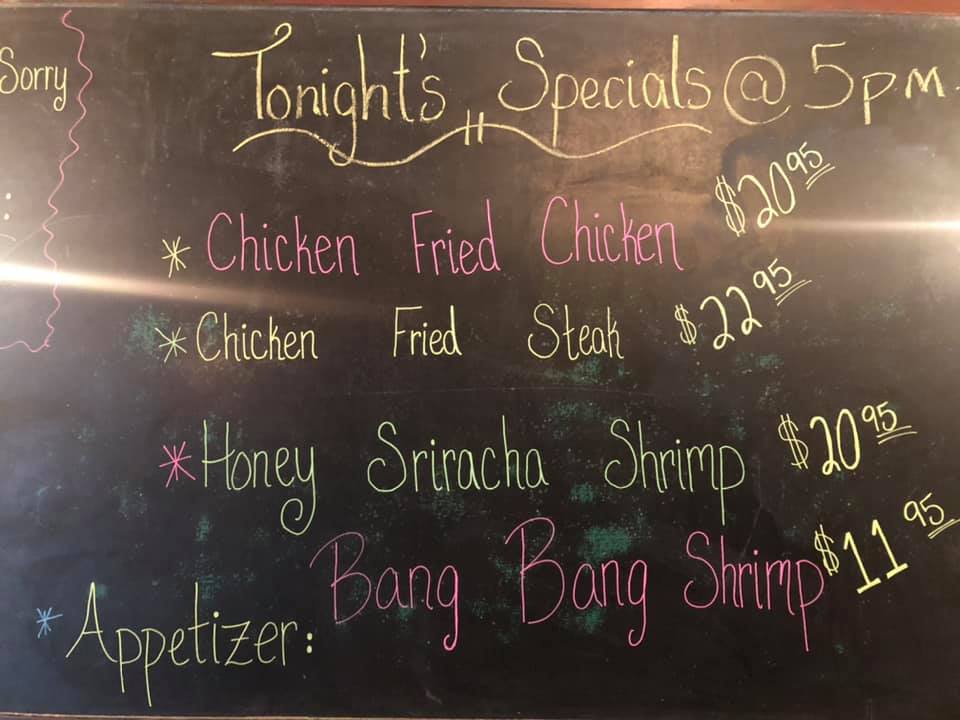 Sorry
Tonight's Specials @ 5pm.
* Chicken Fried Chicken $20.95
* Chicken Fried Steak $22.95
* Honey Sriracha Shrimp $20.95
* Appetizer: Bang Bang Shrimp $11.95